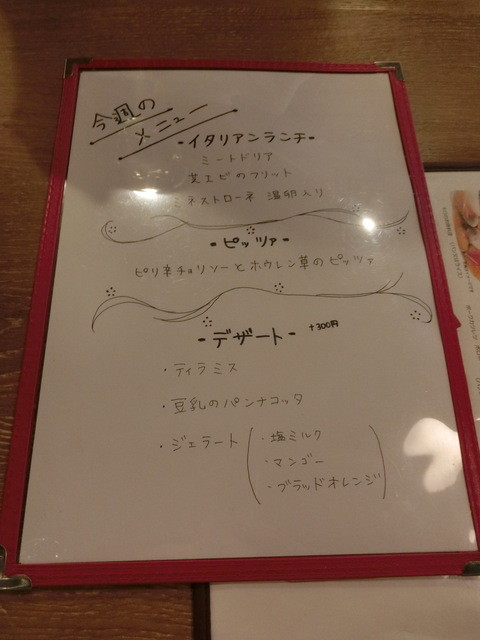 今週の
メニュー
-イタリアンランチ-
ミートドリア
芝エビのフリット
ミネストローネ 温卵入り
-ピッツァ-
ピリ辛チョリソーとホウレン草のピッツァ
-デザート- +300円
・ティラミス
・豆乳のパンナコッタ
・ジェラート
・塩ミルク
・マンゴー
・ブラッドオレンジ